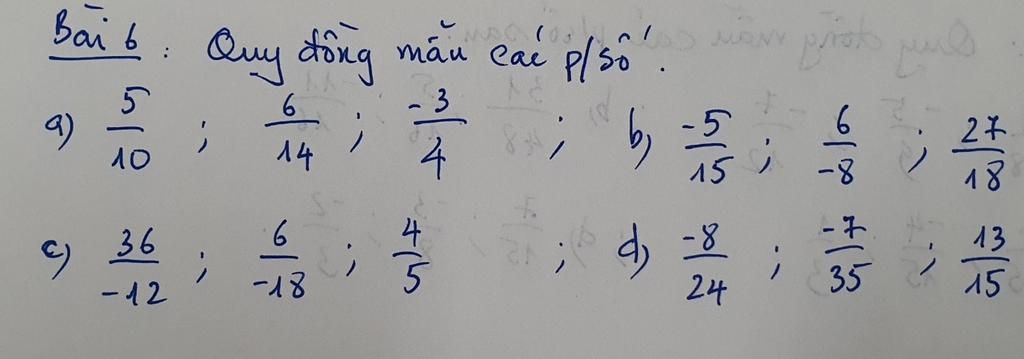 Bài 6 : Quy đồng mẫu các p/số.
a) 5/10 ; 6/14 ; -3/4 ; b) -5/15 ; 6/-8 ; 27/18
c) 36/-12 ; 6/-18 ; 4/5 ; d) -8/24 ; -7/35 ; 13/15